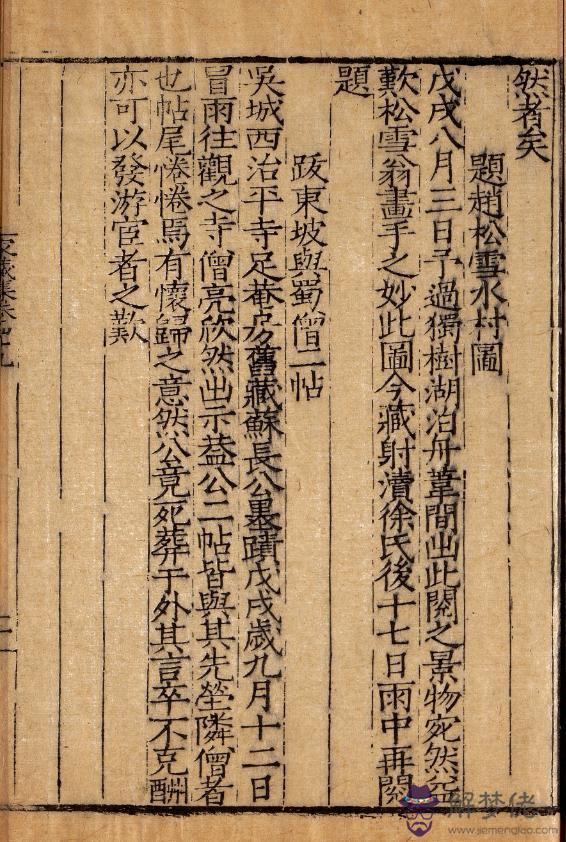 然者矣
題趙松雪水村圖
戊戌八月三日予過獨樹湖泊舟葦間出此閱之景物宛然益
歎松雪翁畫手之妙此圖今藏射瀆徐氏後十七日雨中再閱
題
跋東坡與蜀僧二帖
吳城西治平寺足菴房舊藏蘇長公墨蹟戊戌歲九月十二日
冒雨往觀之寺僧亮欣然出示蓋公二帖皆與其先塋隣僧者
也帖尾惓惓焉有懷歸之意然公竟死葬于外其言卒不克酬
亦可以發游宦者之歎
解梦佬
www.jiemenglao.com